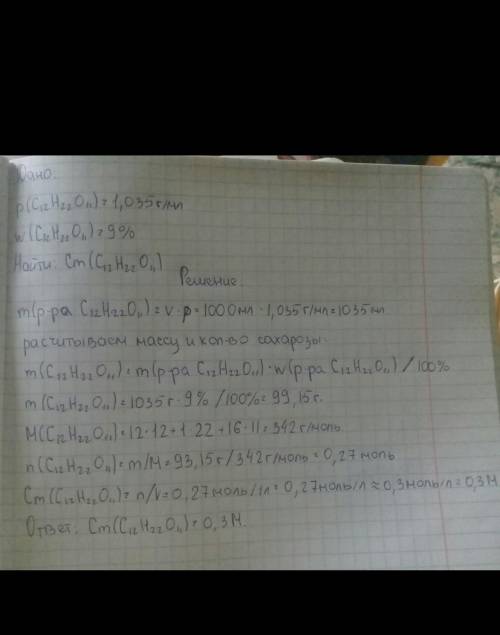 Дано:
ρ(C₁₂H₂₂O₁₁)=1,035г/мл
w(C₁₂H₂₂O₁₁)=9%
Найти: Cm(C₁₂H₂₂O₁₁)
Решение:
m(р-ра C₁₂H₂₂O₁₁)=v·ρ=1000мл·1,035г/мл=1035мл
расчитываем массу и кол-во сахарозы:
m(C₁₂H₂₂O₁₁)=m(р-ра C₁₂H₂₂O₁₁)·w(р-ра C₁₂H₂₂O₁₁)/100%
m(C₁₂H₂₂O₁₁)=1035г·9%/100%=99,15г.
M(C₁₂H₂₂O₁₁)=12·12+1·22+16·11=342г/моль
n(C₁₂H₂₂O₁₁)=m/M=93,15г/342г/моль=0,27моль
Cm(C₁₂H₂₂O₁₁)=n/v=0,27моль/1л=0,27моль/л≈0,3моль/л=0,3М
Ответ: Cm(C₁₂H₂₂O₁₁)=0,3М.